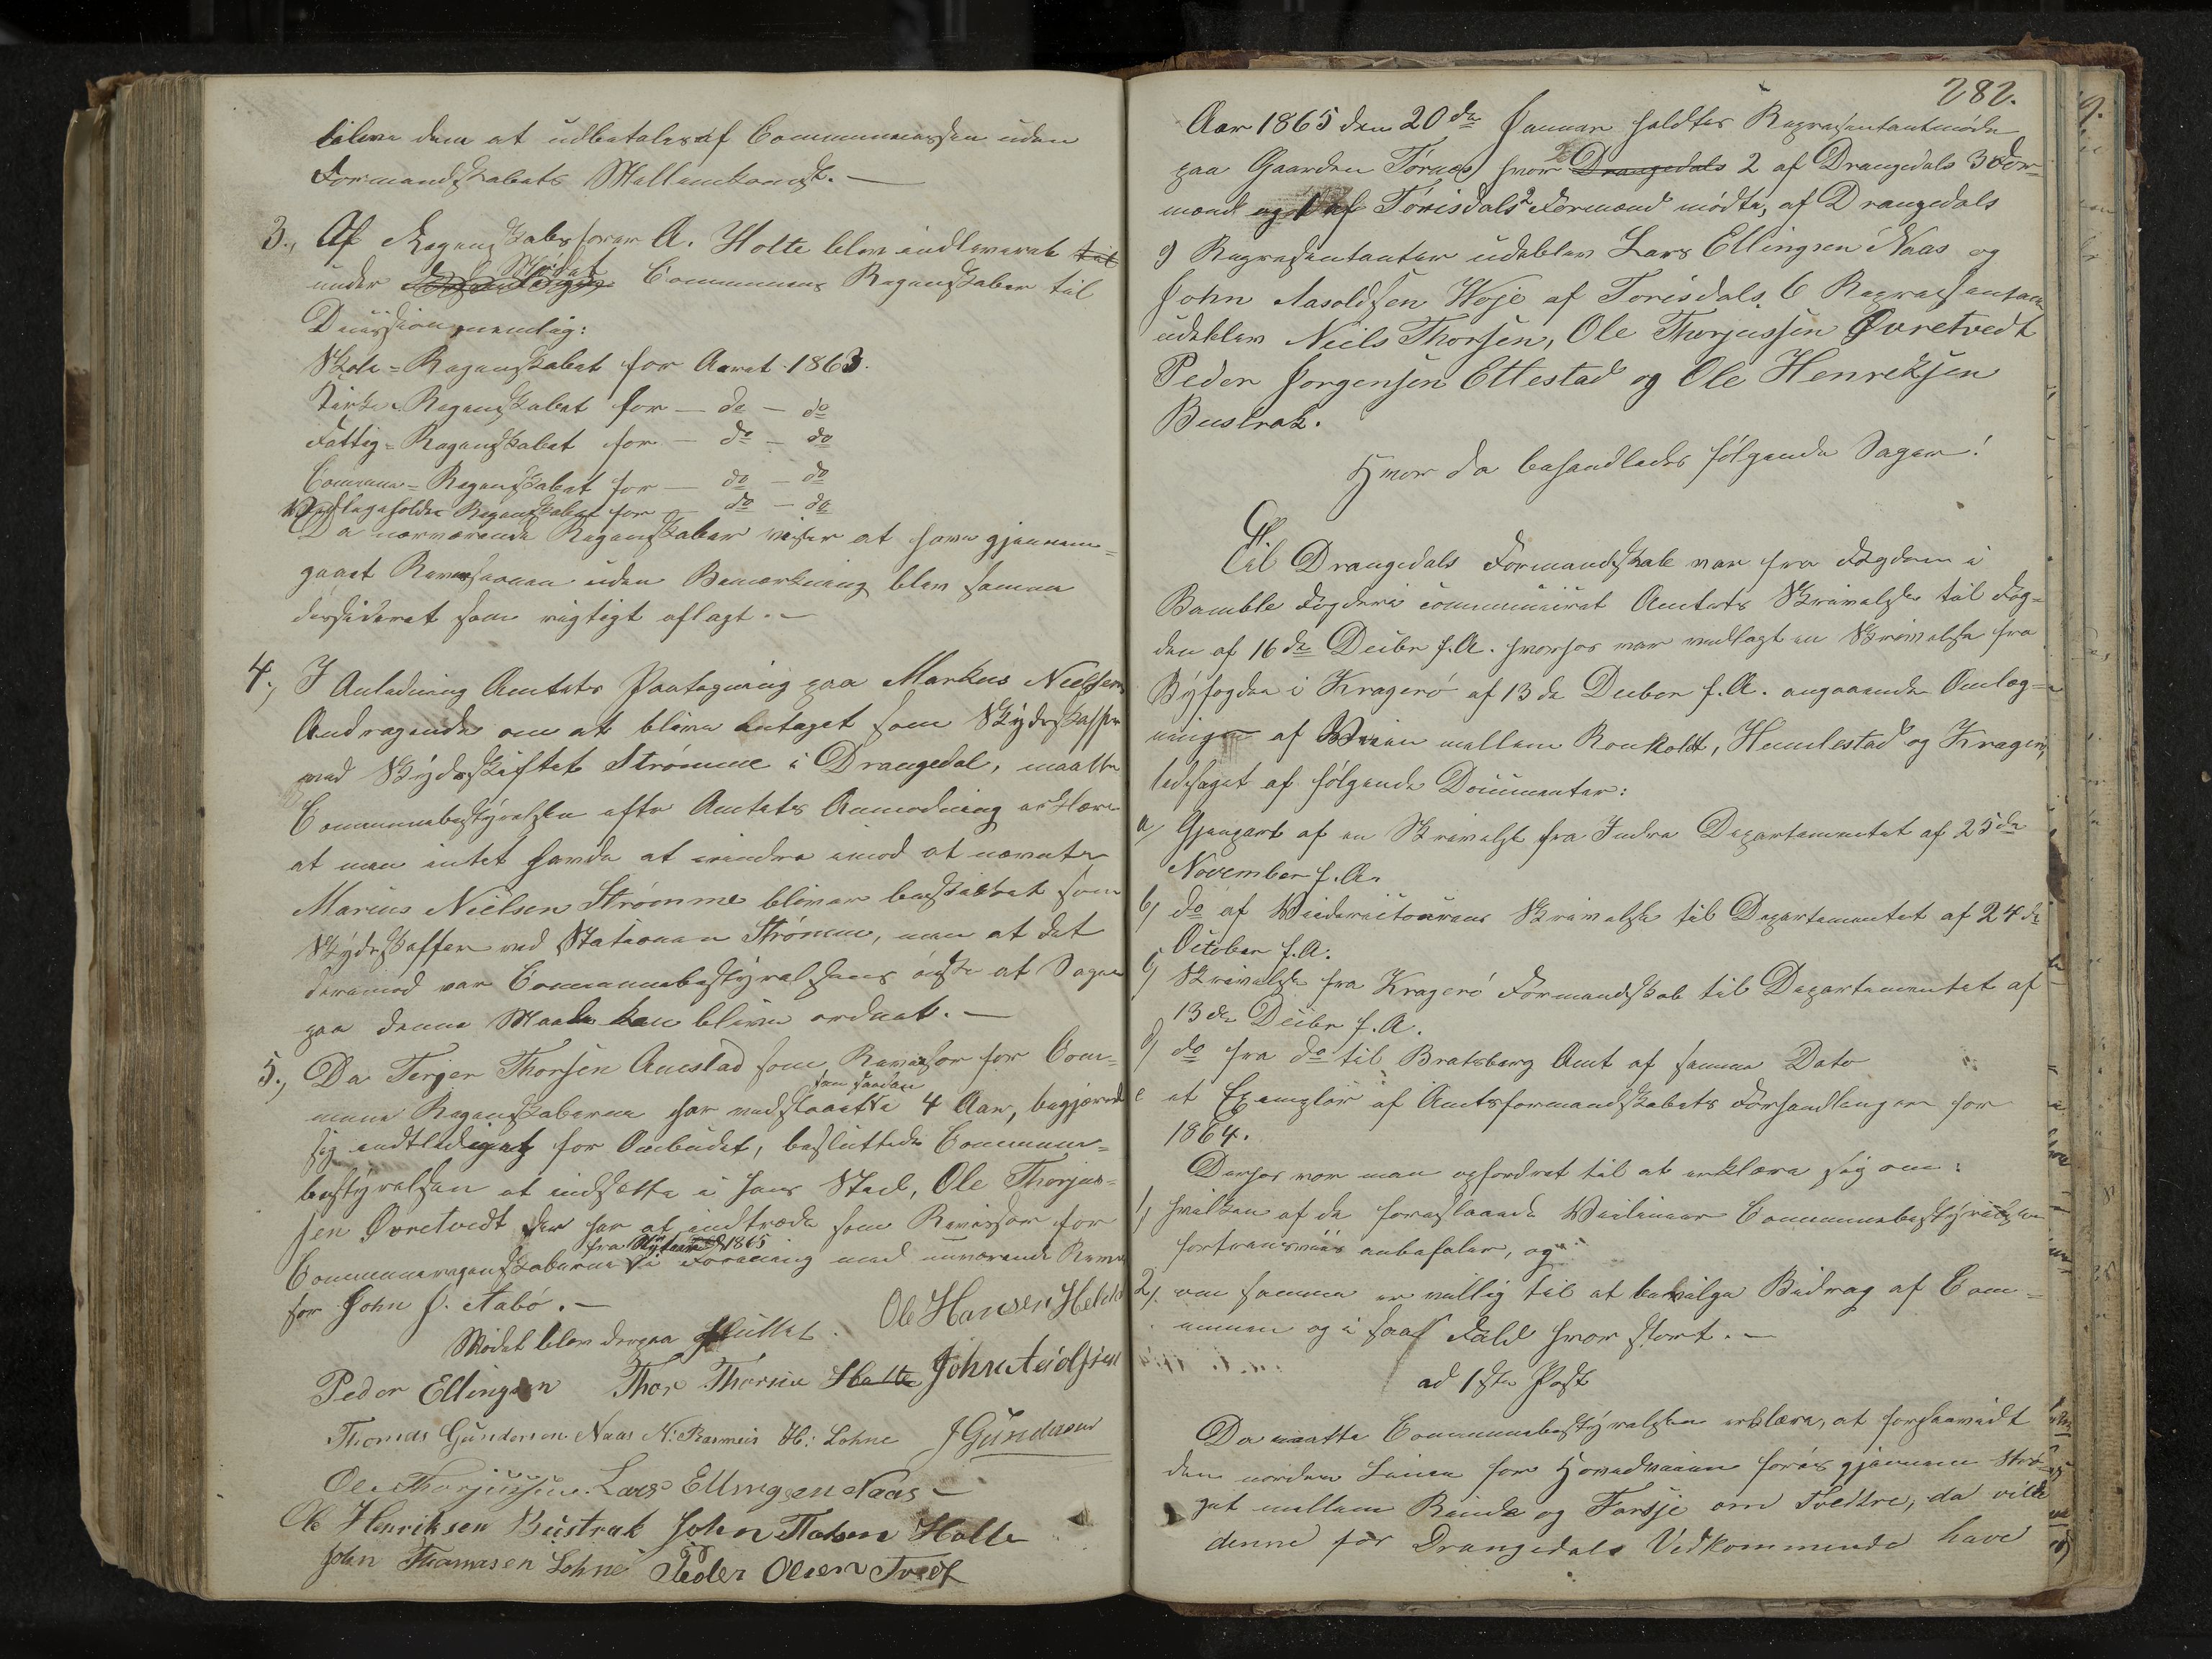 blive dem at udbetales af Communecassen uden
Formandskabets Mellemkomst. —
3., Af Regenskabsfører A. Holte blev indleveret
under Mødet Communens Regenskaber til
Decission, nemlig:
Skole=Regenskabet for Aaret 1863.
Kirke=Regenskabet for — do — do
Fattig=Regenskabet for — do — do
Commune=Regenskabet for — do — do
Vedligeholdes Regenskabet for — do — do
Da nærværende Regenskaber viser at have gjennem=
gaaet Revisionen uden Bemærkning blev samme
desideret som rigtigt aflagt. —
4., I Anledning Amtets Paategning paa Markus Nielsens
Andragende om at blive antaget som Skydsskaffer
ved Skydsskiftet Strømme i Drangedal, maatte
Communebestyrelsen efter Amtets Anmodning erklære
at man intet havde at erindre imod at nævnte
Marius Nielsen Strømme bliver beskikket som
Skydsskaffer ved Stationen Strømme, men at det
derimod var Communebestyrelsens ønske at Sagen
paa denne Maade kan blive ordnet. —
5., Da Terjer Thorsen Aaestad som Revissor for Com=
mune Regenskaberne har som saadan 4 Aar, begjæred
sig entlediget for Ombudet, besluttede Commune=
bestyrelsen at indsætte i hans Sted, Ole Thorjus=
sen Øvretvedt der har at indtræde som Revissor for
Communeregenskaberne fra Nytaar 1865 i Forening med nuværende Revis
sor John J. Aabø. —
Mødet blev derpaa sluttet. Ole Hansen Helle
Peder Ellingsen Thor Thorsen Holte John Axølsjen
Thomas Gunderson Naas N: Rasmus H: Lohne J Gunderson
Ole Thorjussen. Lars Ellingsen Naas —
Ole Henriksen Bustrak John Holte
John Thomasen Lohne Peder Olsen Tvedt
282.
Aar 1865 den 20de Januar holdtes Repræsentantmøde
paa Gaarden Tørnes hvor Drangedals 2 af Drangedals 3 For=
mænd og 1 af Tørisdals 2 Formænd mødte, af Drangedals
9 Repræsentanter udeblev Lars Ellingsen Naas og
John Aasoldsen Woje af Torisdals 6 Repræsentan
udeblev Niels Thorsen, Ole Thorjussen Øvretvedt
Peder Jørgensen Ettestad og Ole Henriksen
Bustrak.
Hvor da behandledes følgende Sager:
Til Drangedals Formandskab var fra Fogden i
Bamble Fogderi communiceret Amtets Skrivelse til Fog=
den af 16de Decbr f.A. hvorhos var vedlagt en Skrivelse fra
Byfogden i Kragerø af 13de Decbor f.A. angaaende Omlæg=
ningen af Veien mellem Ronholdt, Humlestad og Kragerø,
ledsaget af følgende Documenter:
a) Gjenpart af en Skrivelse fra Indre Departementet af 25de
November f.A.
b) do af Veidirecteurens Skrivelse til Departementet af 24de
October f.A.
c) Skrivelse fra Kragerø Formandskab til Departementet af
13de Decbr f.A.
d) do fra do til Bratsberg Amt af samme Dato
e et Exemplar af Amtsformandskabets Forhandlinger for
1864.
Derhos var man opfordret til at erklære sig om:
1, hvilken af de foreslaaede Veilinier Communebestyrelsen
fortrinsviis anbefaler, og
2, om samme er villig til at bevilge Bidrag af Com=
munen og i saa Fald hvor stort. —
ad 1ste Post
Da maatte Communebestyrelsen erklære, at forsaavidt
den norden Linie for Hovedveien føres gjennem Strø=
get mellem Rinde og Farsje om Tvedtre, da vilde
denne for Drangedals Vedkommende have